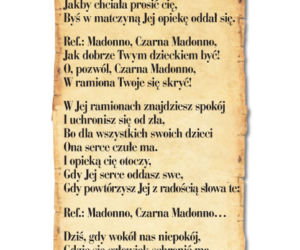 Jakby chciała prosić cię,
Byś w matczyną Jej opiekę oddał się.
Ref.: Madonno, Czarna Madonno,
Jak dobrze Twym dzieckiem być!
O, pozwól, Czarna Madonno,
W ramiona Twoje się skryć!
W Jej ramionach znajdziesz spokój
I uchronisz się od zła,
Bo dla wszystkich swoich dzieci
Ona serce czułe ma.
I opieką cię otoczy,
Gdy Jej serce oddasz swe,
Gdy powtórzysz Jej z radością słowa te:
Ref.: Madonno, Czarna Madonno…
Dziś, gdy wokół nas niepokój,